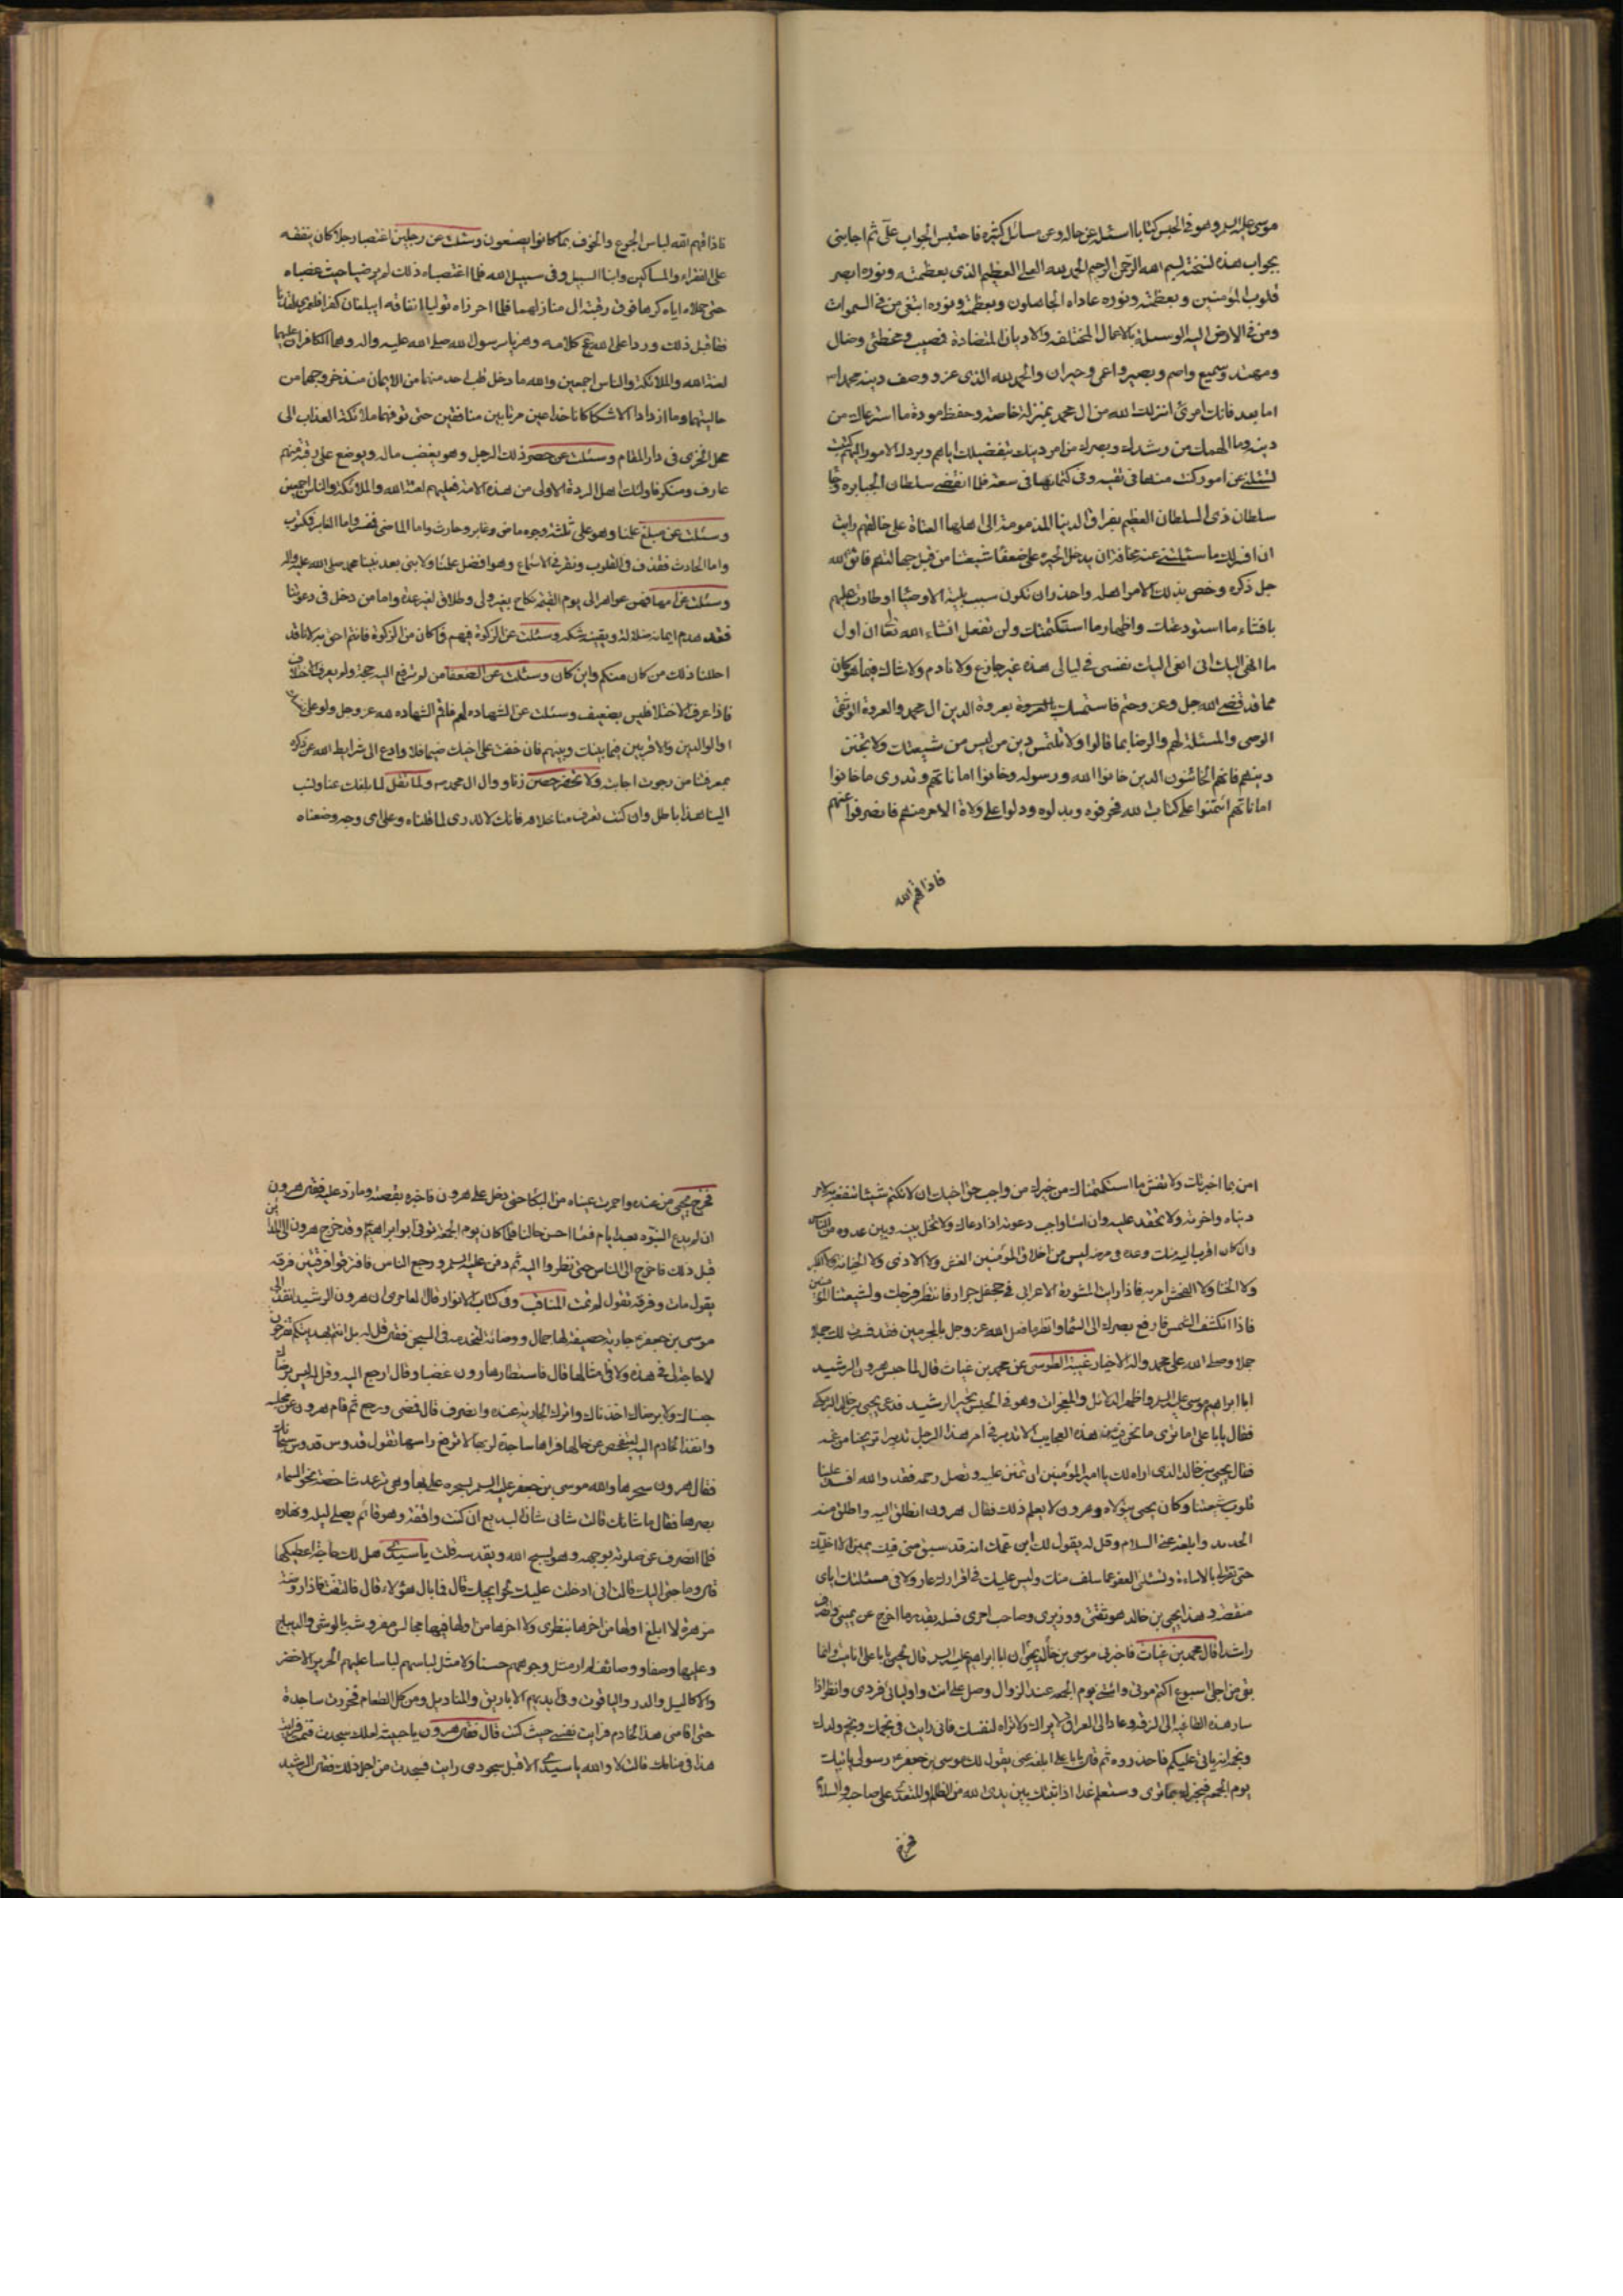 موسى عليه السلم وهو في الحبس كتابا اسئله عن حاله وعن مسائل كثيرة فاحتبس الجواب علىّ ثم اجابني
بجواب هذه نسخته بسم الله الرحمن الرحيم الحمد لله العلي العظيم الذي بعظمته ونوره ابصر
قلوب المؤمنين وبعظمته ونوره عاداه الجاهلون وبعظمته ونوره ابتغى من في السموات
ومن في الارض اليه الوسيلة بالاعمال المختلفه والاديان المتضادة فمصيب ومخطئ وضال
ومهتد وسميع واصم وبصير واعمى وحيران والحمد لله الذي عز ووصف دينه محمدا
اما بعد فانك امرئ انزلك الله من ال محمد بمنزلة خاصة وحفظ مودة ما استرعاك من
دينه وما الهمك من رشدك وبصرك من امر دينك بتفضيلك اياهم وبردك الامور اليهم كتبت
تسئلني عن امور كنت منها في تقية ومن كتمانها في سعة فلما انقضى سلطان الجبابرة وجاء
سلطان ذي السلطان العظيم بفراق الدنيا المذمومة الى اهلها العتاة على خالقهم رايت
ان افسر لك ما سئلتني عنه مخافة ان يدخل الحيرة على ضعفاء شيعتنا من قبل جهالتهم فاتق الله
جل ذكره وخص بذلك الامر اهله واحذر ان تكون سبب بلية الاوصيا او حارشا عليهم
بافشاء ما استودعتك واظهار ما استكتمتك ولن تفعل انشاء الله تعا ان اول
ما انهى اليك انى انعى اليك نفسي في ليالي هذه غير جازع ولا نادم ولا شاك فيما هو كائن
مما قد قضى الله جل وعز وحتم فاستمسك بعروة الدين ال محمد والعروة الوثقى
الوصي والمسئلة لهم والرضا بما قالوا ولا تلتمس دين من ليس من شيعتك ولا تحبن
دينهم فانهم الخائنون الذين خانوا الله ورسوله وخانوا اماناتهم وتدري ما خانوا
اماناتهم ائتمنوا على كتاب الله فحرفوه وبدلوه ودلوا على ولاة الامر منهم فانصرفوا عنهم
فاذاقهم الله
فاذاقهم الله لباس الجوع والخوف بما كانوا يصنعون وسئلت عن رجلين اغتصبا رجلا كان ينفقه
على الفقراء والمساكين وابنا السبيل وفي سبيل الله فلما اغتصباه ذلك لم يرضيا حيث غصباه
حتى حملاه اياه كرها فوق رقبته الى منازلهما فلما احرزاه توليا انفاقه ايبلغان كفرا فلعمري لقد نافقا
قبل ذلك وردا على الله عج كلامه وهزيا برسول الله صلى الله عليه واله وهما الكافران عليهما
لعنة الله والملائكة والناس اجمعين والله ما دخل قلب احد منهما من الايمان منذ خروجهما من
حاليتهما وما ازدادا الا شكا كانا خداعين مرتابين منافقين حتى توفتهما ملائكة العذاب الى
محل الخزى في دار المقام وسئلت عن حضر ذلك الرجل وهو يغصب ماله ويوضع على رقبته منهم
عارف ومنكر فاولئك اهل الردة الاولى من هذه الامة فعليهم لعنة الله والملائكة والناس اجمعين
وسئلت عن مبلغ علمنا وهو على ثلثة وجوه ماض وغابر وحادث واما الماضي فمفسر واما الغابر فمكتوب
واما الحادث فقذف في القلوب ونقر في الاسماع وهو افضل علمنا ولا نبي بعد نبينا محمد صلى الله عليه واله
وسئلت عن امهات فهن عواهر الى يوم القيمة نكاح بغير ولي وطلاق لغير عدة واما من دخل في دعوتنا
فقد هدم ايمانه ضلاله ويقينه شكه وسئلت عن الزكوة فيهم فما كان من الزكوة فانتم احق به لانا قد
احللنا ذلك من كان منكم واين كان وسئلت عن الضعفاء من لم ترفع اليه حجة ولم يعرف الاختلاف
فاذا عرف الاختلاف فليس بضعيف وسئلت عن الشهاده لهم فاقم الشهاده لله عز وجل ولو على نفسك
او الوالدين والاقربين فيما بينك وبينهم فان خفت على اخيك ضيما فلا وادع الى شرايط الله عز ذكره
بمعرفتنا من رجوت اجابته ولا تحضر حصن زنا ووال ال محمد ولا تقل لما بلغك عنا ونسب
الينا هذا باطل وان كنت تعرف منا خلافه فانك لا تدري لما قلناه وعلى اي وجه وضعناه
امن بما اخبرتك ولا تفش ما استكتمناك من خبرك من واجب حق اخيك ان لا تكتمه شيئا تنفعه به لامر
دنياه واخرته ولا تحقد عليه وان اساء واجب دعوته اذا دعاك ولا تخل بينه وبين عدوه من الناس
وان كان اقرب اليه منك وعده في مرضه ليس من اخلاق المؤمنين الغش ولا الاذى ولا الخيانة ولا الكبر
ولا الخنا ولا الفحش امر به فاذا رايت المشوه الاعرابي في جحفل جرار فانتظر فرجك ولشيعتنا المؤمنين
فاذا انكشف الشمس فارفع بصرك الى السماء وانظر ما فعل الله عز وجل بالمجرمين فقد فسرت لك جملا
جملا وصلى الله على محمد واله الاخيار غيبة الطوسي عن محمد بن غياث قال لما حبس هرون الرشيد
ابا ابراهيم موسى عليه السلم واظهر الدلائل والمعجزات وهو في الحبس تحير الرشيد فدعى يحيى بن خالد البرمكي
فقال يا ابا علي اما ترى ما نحن فيه من هذه العجايب الا تدبر في امر هذا الرجل تدبيرا تريحنا من غمه
فقال يحيى بن خالد الذي اراه لك يا امير المؤمنين ان تمنن عليه وتصل رحمه فقد والله افسد علينا
قلوب شيعتنا وكان يحيى يتولاه وهرون لا يعلم ذلك فقال هرون انطلق اليه واطلق عنه
الحديد وابلغه عني السلام وقل له يقول لك ابن عمك انه قد سبق مني فيك يمين انى لا اخليك
حتى تقر لي بالاساءة وتسئلني العفو عما سلف منك وليس عليك في اقرارك عار ولا في مسئلتك اياي
منقصة وهذا يحيى بن خالد هو ثقتي ووزيري وصاحب امري فسله بقدر ما اخرج عن يميني وانصرف
راشدا قال محمد بن غياث فاخبرني موسى بن خالد يحيى ان ابا ابراهيم عليه السلم قال ليحيى يا ابا علي انا ميت وانما
بقى من اجلي اسبوع اكتم موتي وائتني يوم الجمعه عند الزوال وصل علي انت واوليائي فردى وانظر اذا
سار هذه الطاغيه الى الرقة وعاد الى العراق لا يراك ولا تراه لنفسك فاني رايت في نجمك ونجم ولدك
ونجمه انه ياتي عليكم فاحذروه ثم قال يا ابا علي ابلغه عني يقول لك موسى بن جعفر رسولي ياتيك
يوم الجمعه فيخبرك بما ترى وستعلم غدا اذا جثيتك بين يدي الله من الظالم والمتعدي على صاحبه والسلام
فخرج
فخرج يحيى من عنده واحمرت عيناه من البكاء حتى دخل على هرون فاخبره بقصته وما رد عليه فقال هرون
ان لم يدع النبوه بعد ايام فما احسن حالنا فلما كان يوم الجمعة توفي ابو ابراهيم وقد خرج هرون الى المدائن
قبل ذلك فاخرج الى الناس حتى نظروا اليه ثم دفن عليه السلم ورجع الناس فافترقوا فرقتين فرقه
يقول مات وفرقه تقول لم يمت المناقب وفي كتاب الانوار قال العامري ان هرون الرشيد انفذ الى
موسى بن جعفر جارية حصيفة لها جمال ووضائة لتخدمه في السجن فقال قل له بل انتم بهديتكم تفرحون
لا حاجة لي في هذه ولا في امثالها قال فاستطار هارون غضبا وقال ارجع اليه وقل له ليس برضاك
حبسناك ولا برضاك اخذناك واترك الجارية عنده وانصرف قال فمضى ورجع ثم قام هرون عن مجلسه
وانفذ الخادم اليه ليتفحص عن حالها فراها ساجدة لربها لا ترفع راسها تقول قدوس قدوس سبحانك
فقال هرون سحرها والله موسى بن جعفر عليه السلم بسحره علي بها وهي ترعد شاخصة نحو السماء
بصرها فقال ما شانك قالت شاني شان البديع ان كنت واقفة وهو قائم يصلي ليله ونهاره
فلما انصرف عن صلوته بوجهه وهو يسبح الله ويقدسه قلت يا سيدي هل لك حاجة اعطيكها
قال وما حاجتي اليك قالت انى ادخلت عليك لحوايجك قال فما بال هؤلاء قال فالتفت فاذا روضة
مزهرة لا ابلغ اولها من اخرها بنظري ولا اخرها من اولها فيها مجالس مفروشة بالوشي والديباج
وعليها وصفاء ووصائف لم ار مثل وجوههم حسنا ولا مثل لباسهم لباسا عليهم الحرير الاخضر
والاكاليل والدر والياقوت وفي ايديهم الاباريق والمناديل ومن كل الطعام فخررت ساجدة
حتى اقامني هذا الخادم فرايت نفسي حيث كنت قال فقال هرون يا خبيثه لعلك سجدت فنمت فرايت
هذا في منامك قالت لا والله يا سيدي الا قبل سجودي رايت فسجدت من اجل ذلك فقال الرشيد